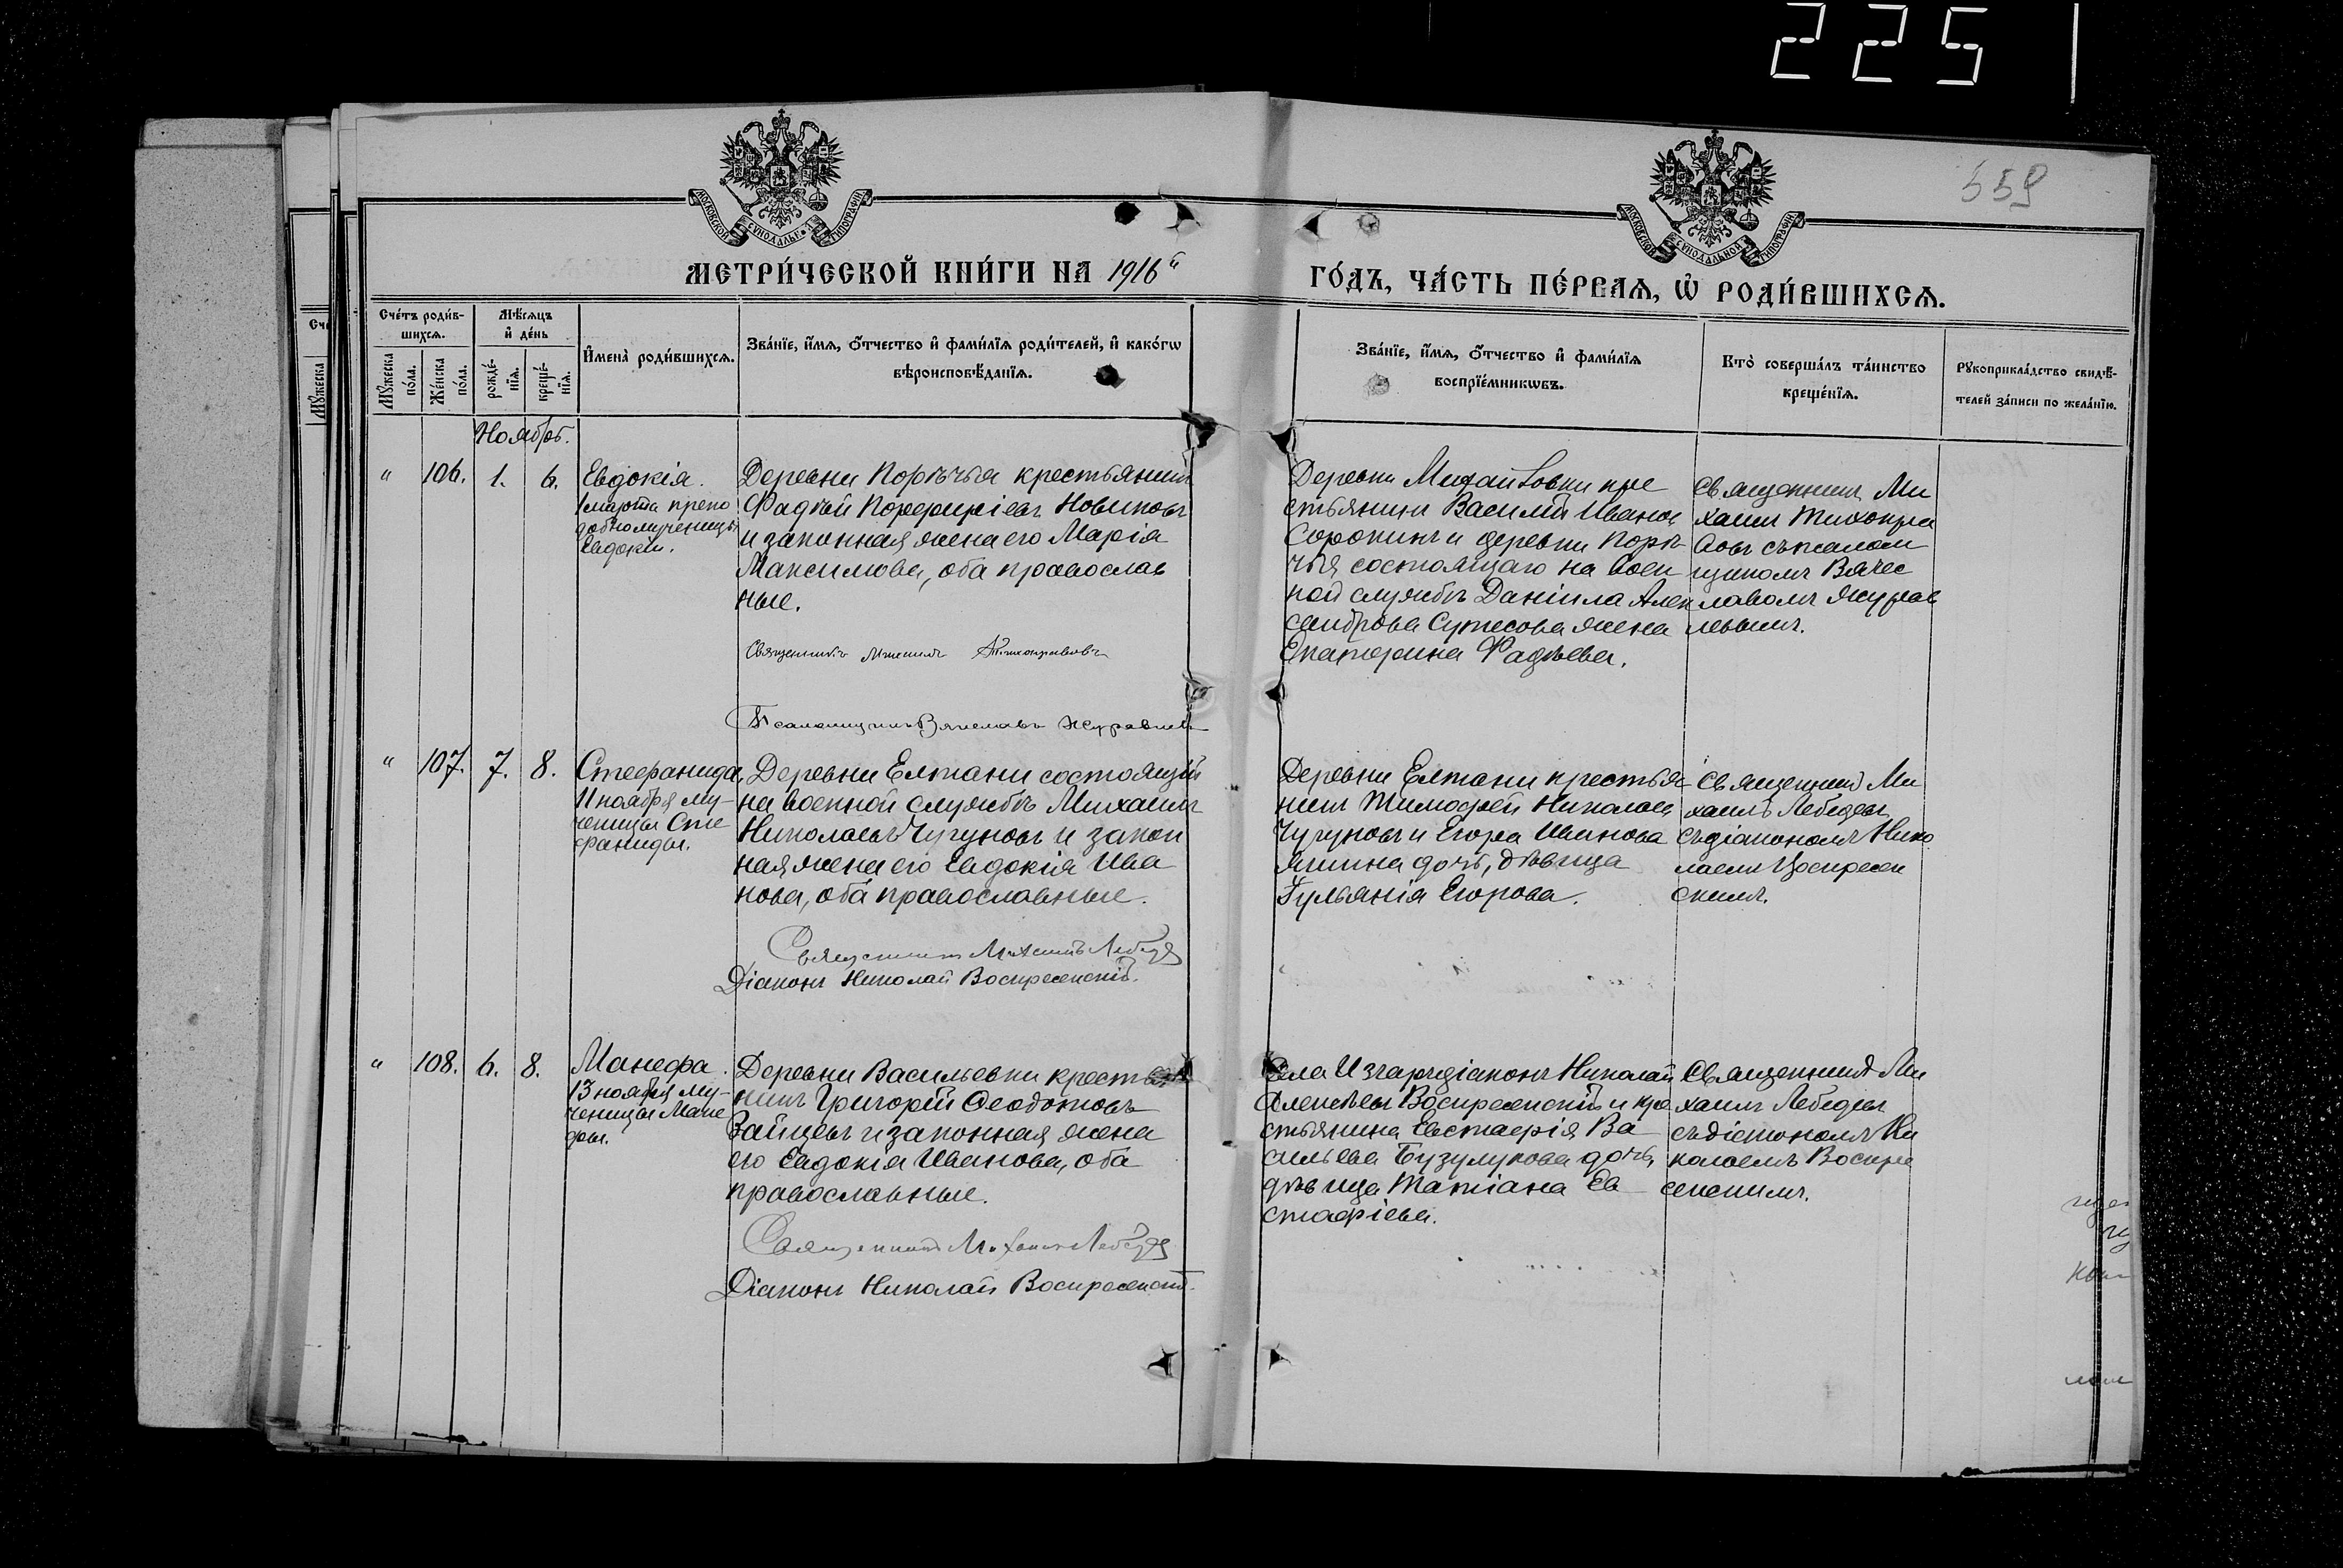 225
559
МОСКОВСКОЙ СѴНОДАЛЬНОЙ ТИПОГРАФІИ
МОСКОВСКОЙ СѴНОДАЛЬНОЙ ТИПОГРАФІИ
МЕТРИ́ЧЕСКОЙ КНИ́ГИ НА 1916й
ГО́ДЪ, ЧА́СТЬ ПЕ́РВАѦ, Ѡ РОДИ́ВШИХСѦ.
Сче́тъ роди́в-
шихсѧ.
Мꙋ́жеска
по́ла.
Же́нска
по́ла.
Мѣ́сѧцъ
и҆ де́нь
рожде́-
нїѧ.
креще́-
нїѧ.
И҆мена̀ роди́вшихсѧ.
Зва́нїе, и҆́мѧ, ѻ҆́тчество и҆ фами́лїѧ роди́телей, и҆ како́гѡ
вѣроисповѣ́данїѧ.
Зва́нїе, и҆́мѧ, ѻ҆́тчество и҆ фами́лїѧ
воспрїе́мникѡвъ.
Кто̀ соверша́лъ та́инство
креще́нїѧ.
Рꙋкоприкла́дство свидѣ́-
телей за́писи по жела́нїю.
Ноябрь.
" 106. 1. 6.
Евдокія.
1 марта препо
добномученицы
Евдокіи.
Деревни Порѣчья крестьянинъ
Фадѣй Порфиріевъ Новиковъ
и законная жена его Марія
Максимова, оба православ
ные.
Священникъ Михаилъ Тихонравовъ
Псаломщикъ Вячеславъ Журавлев
Деревни Михайловки кре
стьянинъ Василій Иванов
Сорокинъ и деревни Порѣ
чья, состоящаго на воен
ной службѣ Даніила Алек
сандрова Сутесова жена
Екатерина Фадѣева.
Священникъ Ми
хаилъ Тихонра
вовъ съ псалом
щикомъ Вячес
лавомъ Журав
левымъ.
" 107. 7. 8.
Стефанида,
11 ноября му-
ченицы Сте
фаниды.
Деревни Елтани состоящій
на военной службѣ Михаилъ
Николаевъ Чугуновъ и закон
ная жена его Евдокія Ива
нова, оба православные.
Священникъ Михаилъ Лебедев
Діаконъ Николай Воскресенскій.
Деревни Елтани крестья
нинъ Тимофей Николаев
Чугуновъ и Егора Иванова
дочь, дѣвица
Гульянія Егорова.
Священник Ми
хаилъ Лебедевъ
съ діакономъ Нико
лаемъ Воскресен
скимъ.
" 108. 6. 8.
Манефа.
13 ноября му-
ченицы Мане
фы.
Деревни Васильевки крестья
нинъ Григорій Ѳеодотовъ
Зайцевъ и законная жена
его Евдокія Иванова, оба
православные.
Священникъ Михаилъ Лебедев
Діаконъ Николай Воскресенскій.
Села Изгаръ діаконъ Николай
Алексѣевъ Воскресенскій и кре
стьянина Евстафія Ва
сильева Бузулукова дочь,
дѣвица Татіана Ев
стафіева.
Священник Ми
хаилъ Лебедевъ
съ діакономъ Ни
колаемъ Воскре
сенскимъ.